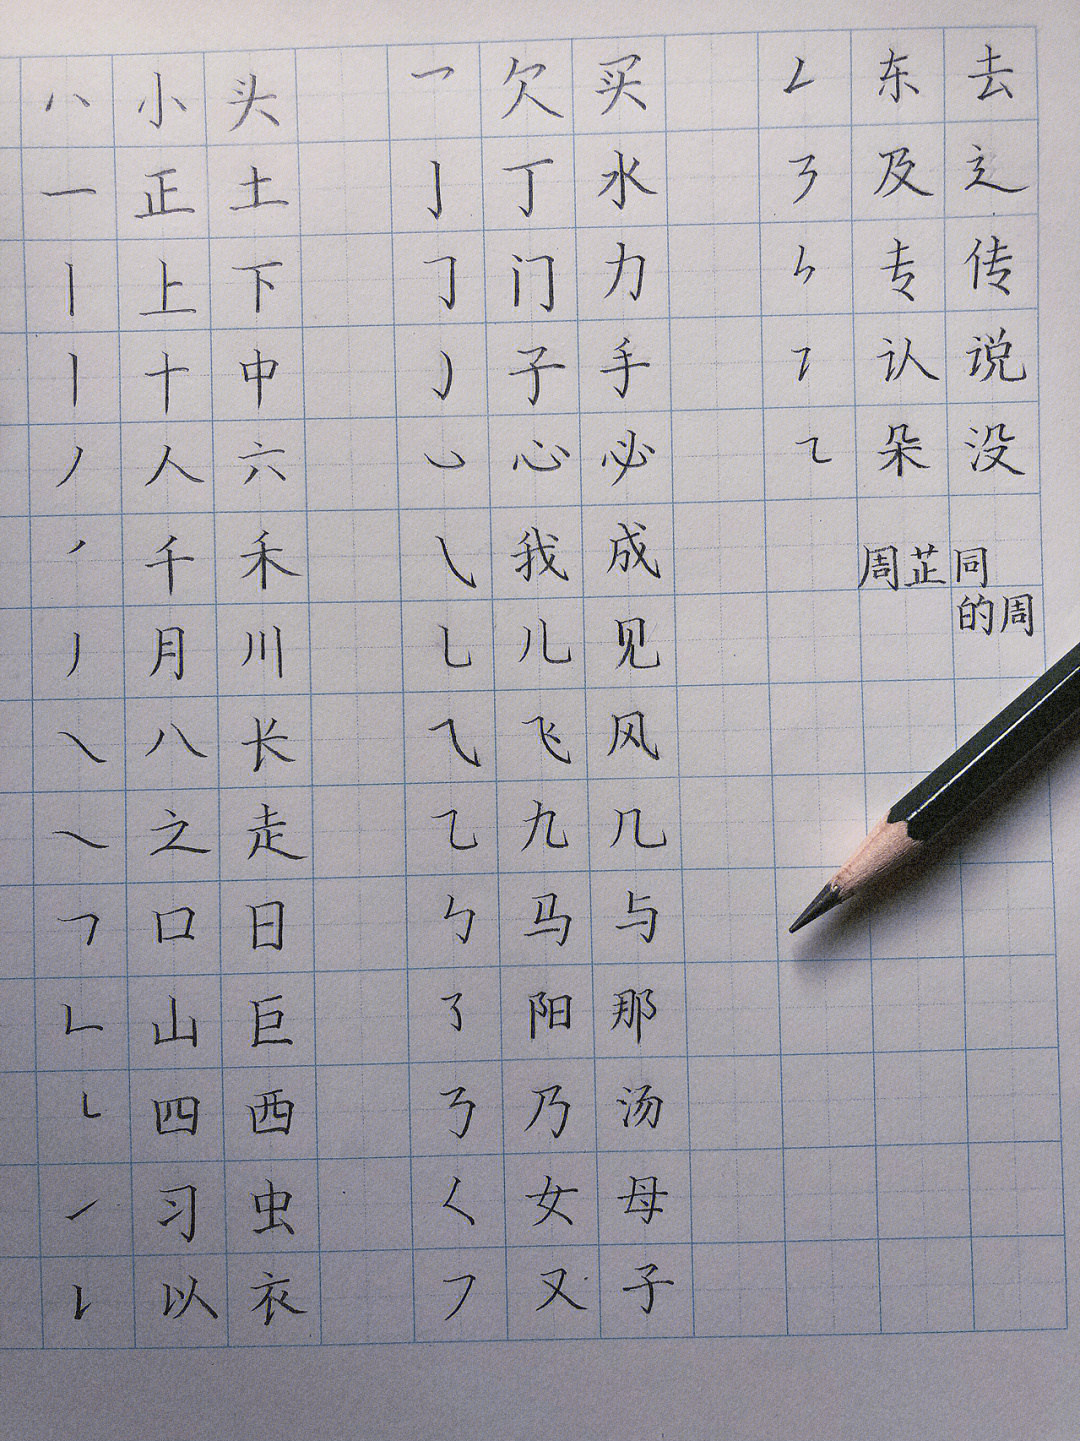 丶 小 头 乛 欠 买 𠃊 东 去
一 正 土 亅 丁 水 ㇋ 及 辶
丨 上 下 𠃌 门 力 ㇉ 专 传
丨 十 中 ㇁ 子 手 ㇊ 认 说
丿 人 六 ㇃ 心 必 ㇍ 朵 没
㇒ 千 禾 ㇂ 我 成
丿 月 川 乚 儿 见
㇏ 八 长 ⺄ 飞 风
㇏ 之 走 乙 九 几
𠃍 口 日 ㇉ 马 与
𠃊 山 巨 ㇌ 阳 那
㇄ 四 西 ㇡ 乃 汤
㇀ 习 虫 𡿨 女 母
𠄌 以 衣 ㇇ 又 子
周芷同
的周